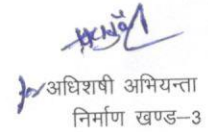 अधिशषी अभियन्ता
निर्माण खण्ड–3